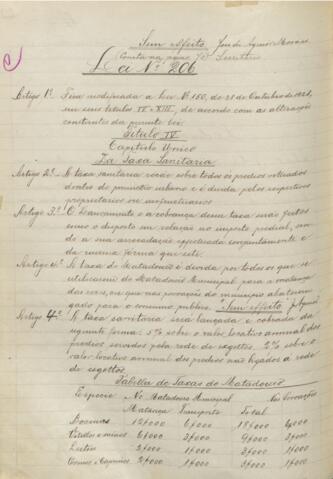 Sem effeito. José de Aguiar Moraes
Consta na
Lei Nº 206
Artigo 1º Fica modificada a Lei Nº 150, de 28 de Outubro de 1921,
em seus titulos IV e XIII, de accordo com as alterações
constantes da presente lei:
Titulo IV
Capitulo Unico
Da Taxa Sanitaria
Artigo 2º A taxa sanitaria recáe sobre todos os predios
dentro do perimetro urbano e é devida pelos respectivos
proprietarios ou
Artigo 3º O lançamento e a cobrança dessa taxa serão feitos
como o disposto em relação ao imposto predial, sen-
do a sua arrecadação effectuada conjunctamente e
da mesma forma que este.
Artigo 4º A taxa de Matadouro é devida por todos os que se
utilisarem do Matadouro Municipal para a matança
de rezes, ou que nas povoações do municipio abaterem
gado para o consumo publico. Sem effeito
Artigo 4º A taxa sanitaria será lançada e cobrada da
seguinte forma: 5% sobre o valor locativo annual dos
predios servidos pela rede de exgottos. 2% sobre o
valor locativo annual dos predios não ligados á rede
de exgottos.
Tabella de Taxas do Matadouro
Especie No Matadouro Municipal Nas Povoações
Matança Transporte Total
Bovinos 12$000 6$000 18$000
Vitellos e 6$000 3$000
Leitões 2$000 1$000 3$000
Ovinos e Caprinos 2$000 1$000 3$000